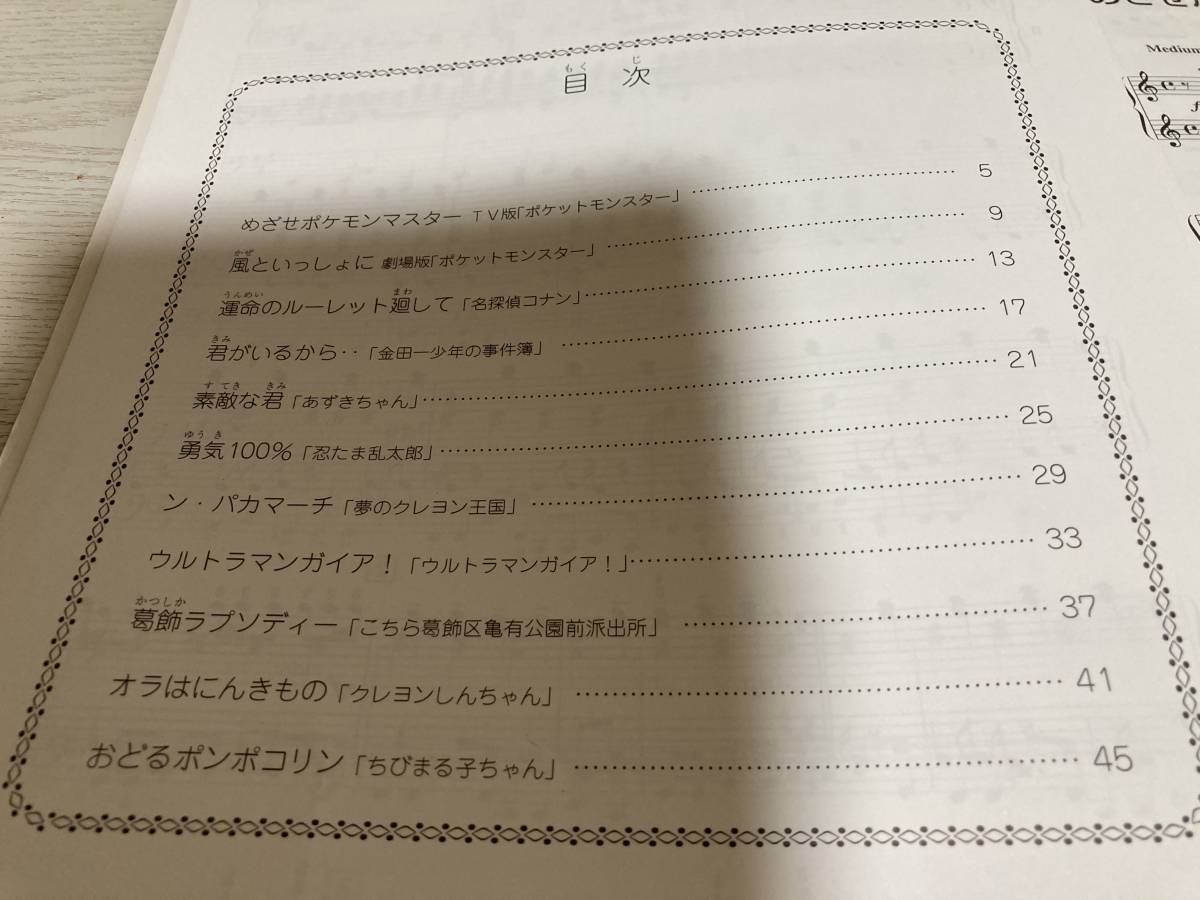 目次
めざせポケモンマスター TV版「ポケットモンスター」 5
風といっしょに 劇場版「ポケットモンスター」 9
運命のルーレット廻して「名探偵コナン」 13
君がいるから‥「金田一少年の事件簿」 17
素敵な君「あずきちゃん」 21
勇気100%「忍たま乱太郎」 25
ン・パカマーチ「夢のクレヨン王国」 29
ウルトラマンガイア！「ウルトラマンガイア！」 33
葛飾ラプソディー「こちら葛飾区亀有公園前派出所」 37
オラはにんきもの「クレヨンしんちゃん」 41
おどるポンポコリン「ちびまる子ちゃん」 45
Medium